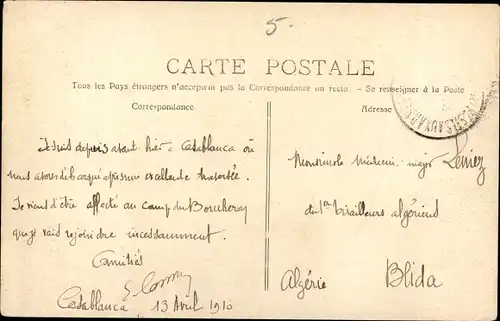 5-
CARTE POSTALE
Tous les Pays étrangers n'acceptent pas la Correspondance au recto. - Se renseigner à la Poste
Correspondance
Adresse
TROUPES AUXAR
Je suis depuis avant hier a Casablanca où
nous avons débarqué après une excellente traversée.
Je viens d'être affecté au camp du Boucheron
que je vais rejoindre incessamment.
Amitiés
Casablanca 13 Avril 1910
Monsieur le médecin-major
du 1er tirailleurs algériens
Algérie Blida